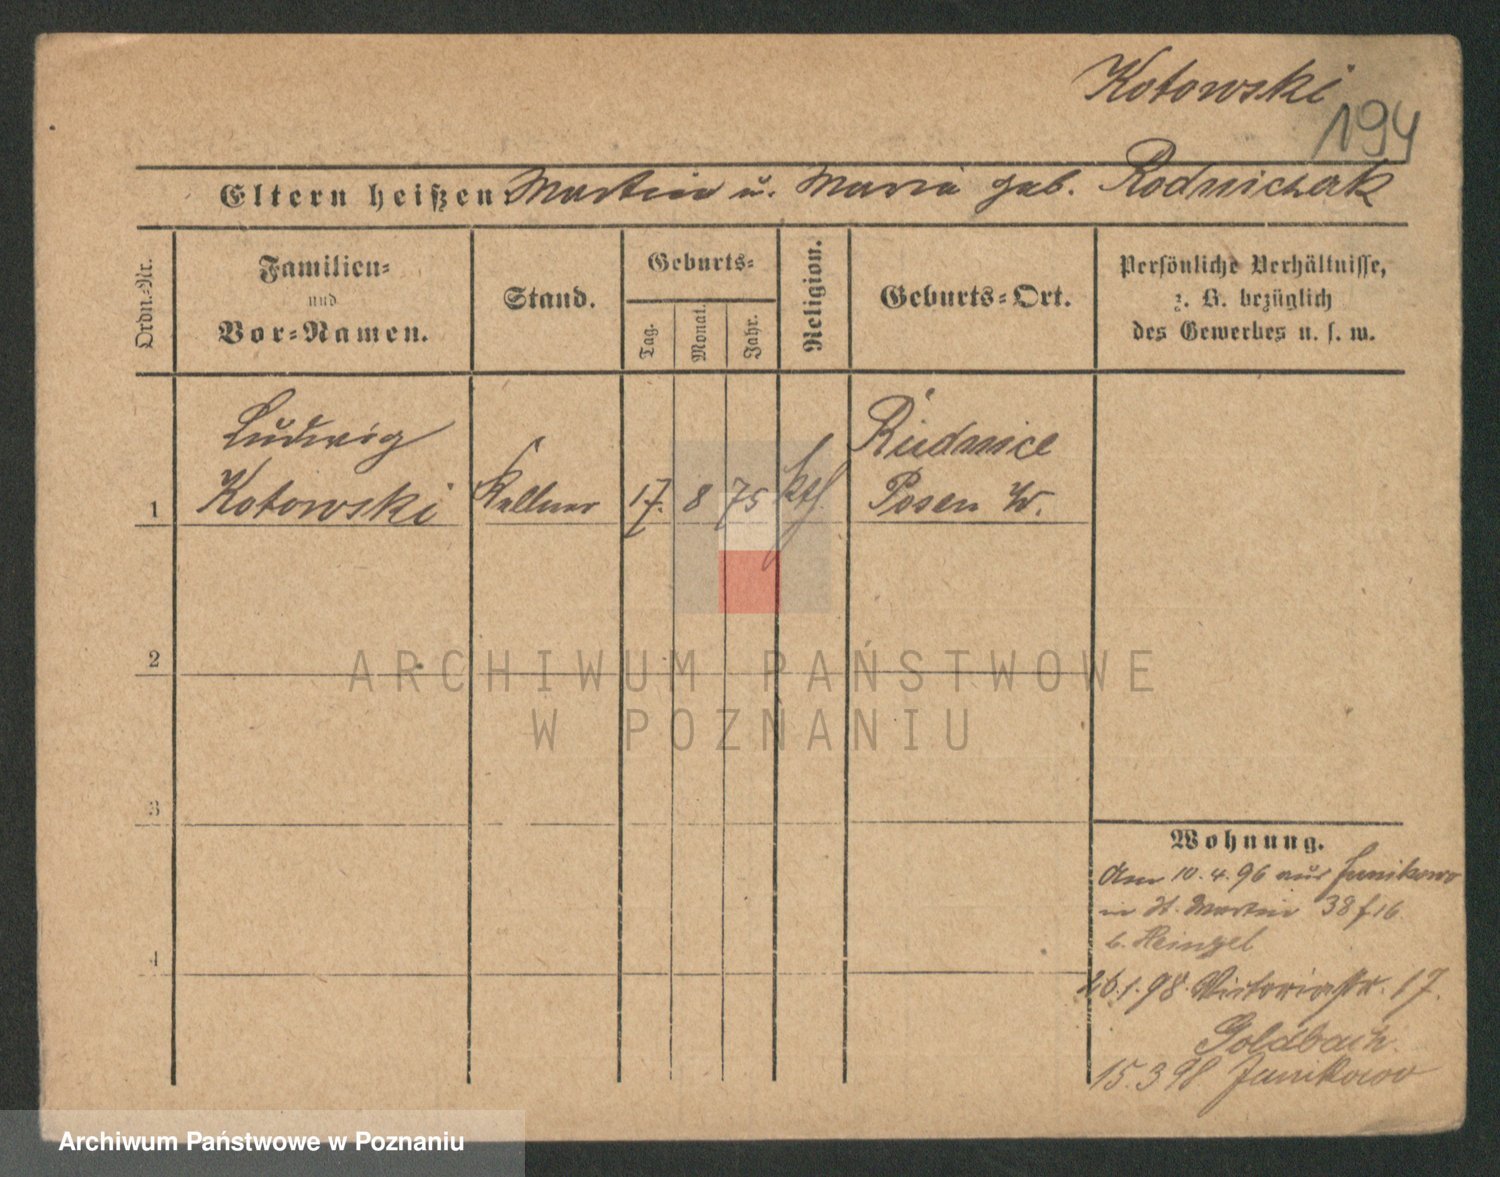 Kotowski
194
Eltern heißen Martin u. Maria geb. Rodwichak
Ordn.-Nr.
Familien-
und
Vor-Namen.
Stand.
Geburts-
Tag.
Monat.
Jahr.
Religion.
Geburts-Ort.
Persönliche Verhältnisse,
z. B. bezüglich
des Gewerbes u. s. w.
Ludwig
Kotowski
Kellner
17.
8
75
kth
Rudnice
Posen W.
1
2
3
4
Wohnung.
Am 10.4.96 aus Janikowo
in St. Martin 38 f 16
b. Heinzel
26.1.98. Victoriastr. 17.
Goldbach.
15.3 98 Janikowo
ARCHIWUM PAŃSTWOWE
W POZNANIU
Archiwum Państwowe w Poznaniu